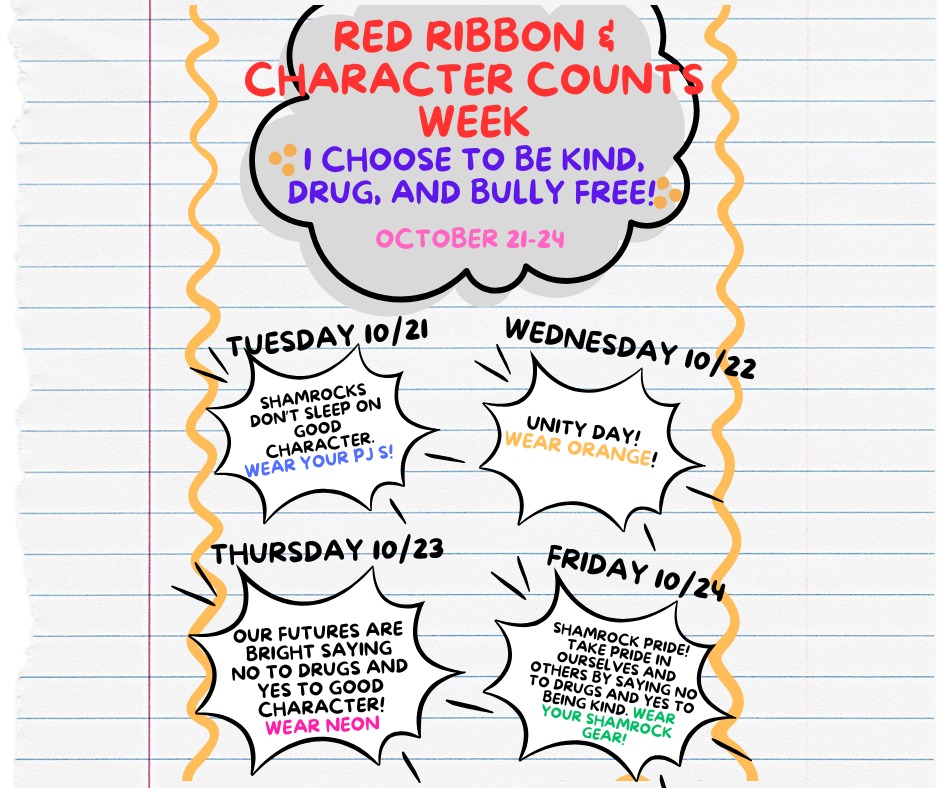 RED RIBBON &
CHARACTER COUNTS
WEEK
I CHOOSE TO BE KIND,
DRUG, AND BULLY FREE!
OCTOBER 21-24
TUESDAY 10/21
SHAMROCKS
DON'T SLEEP ON
GOOD
CHARACTER.
WEAR YOUR PJ S!
WEDNESDAY 10/22
UNITY DAY!
WEAR ORANGE!
THURSDAY 10/23
OUR FUTURES ARE
BRIGHT SAYING
NO TO DRUGS AND
YES TO GOOD
CHARACTER!
WEAR NEON
FRIDAY 10/24
SHAMROCK PRIDE!
TAKE PRIDE IN
OURSELVES AND
OTHERS BY SAYING NO
TO DRUGS AND YES TO
BEING KIND. WEAR
YOUR SHAMROCK
GEAR!